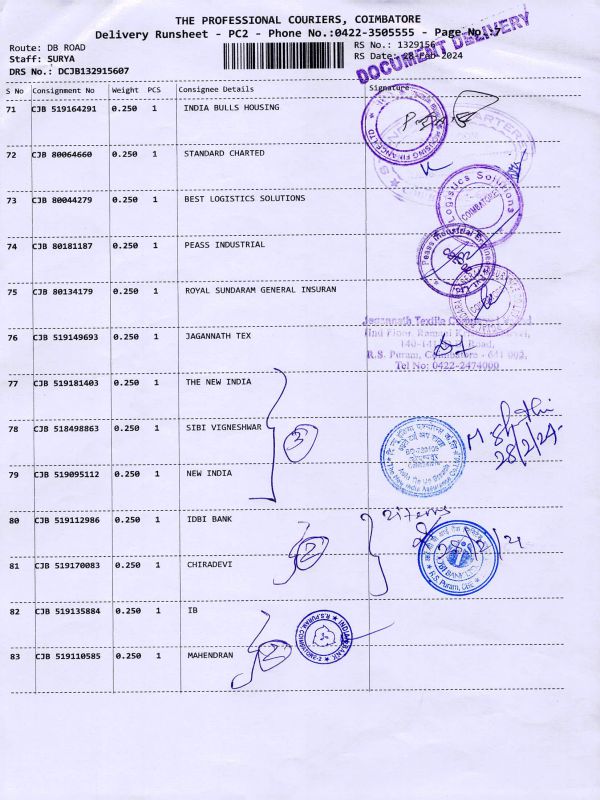 THE PROFESSIONAL COURIERS, COIMBATORE
Delivery Runsheet - PC2 - Phone No.:0422-3505555 - Page No.:7
Route: DB ROAD
RS No.: 1329156
Staff: SURYA
RS Date: 28-Feb-2024
DRS No.: DCJB132915607
DOCUMENT DELIVERY
S No Consignment No Weight PCS Consignee Details Signature
71 CJB 519164291 0.250 1 INDIA BULLS HOUSING
72 CJB 80064660 0.250 1 STANDARD CHARTED
73 CJB 80044279 0.250 1 BEST LOGISTICS SOLUTIONS
Logistics Solutions
COIMBATORE
74 CJB 80181187 0.250 1 PEASS INDUSTRIAL
Peass Industrial
75 CJB 80134179 0.250 1 ROYAL SUNDARAM GENERAL INSURAN
76 CJB 519149693 0.250 1 JAGANNATH TEX
Jagannath Textile
R.S. Puram, Coimbatore - 641 002.
Tel No: 0422-2474000
77 CJB 519181403 0.250 1 THE NEW INDIA
78 CJB 518498863 0.250 1 SIBI VIGNESHWAR
3
28/2/24
79 CJB 519095112 0.250 1 NEW INDIA
80 CJB 519112986 0.250 1 IDBI BANK
2 items
81 CJB 519170083 0.250 1 CHIRADEVI
2
IDBI BANK
R.S. Puram, Cbe
82 CJB 519135884 0.250 1 IB
83 CJB 519110585 0.250 1 MAHENDRAN
2